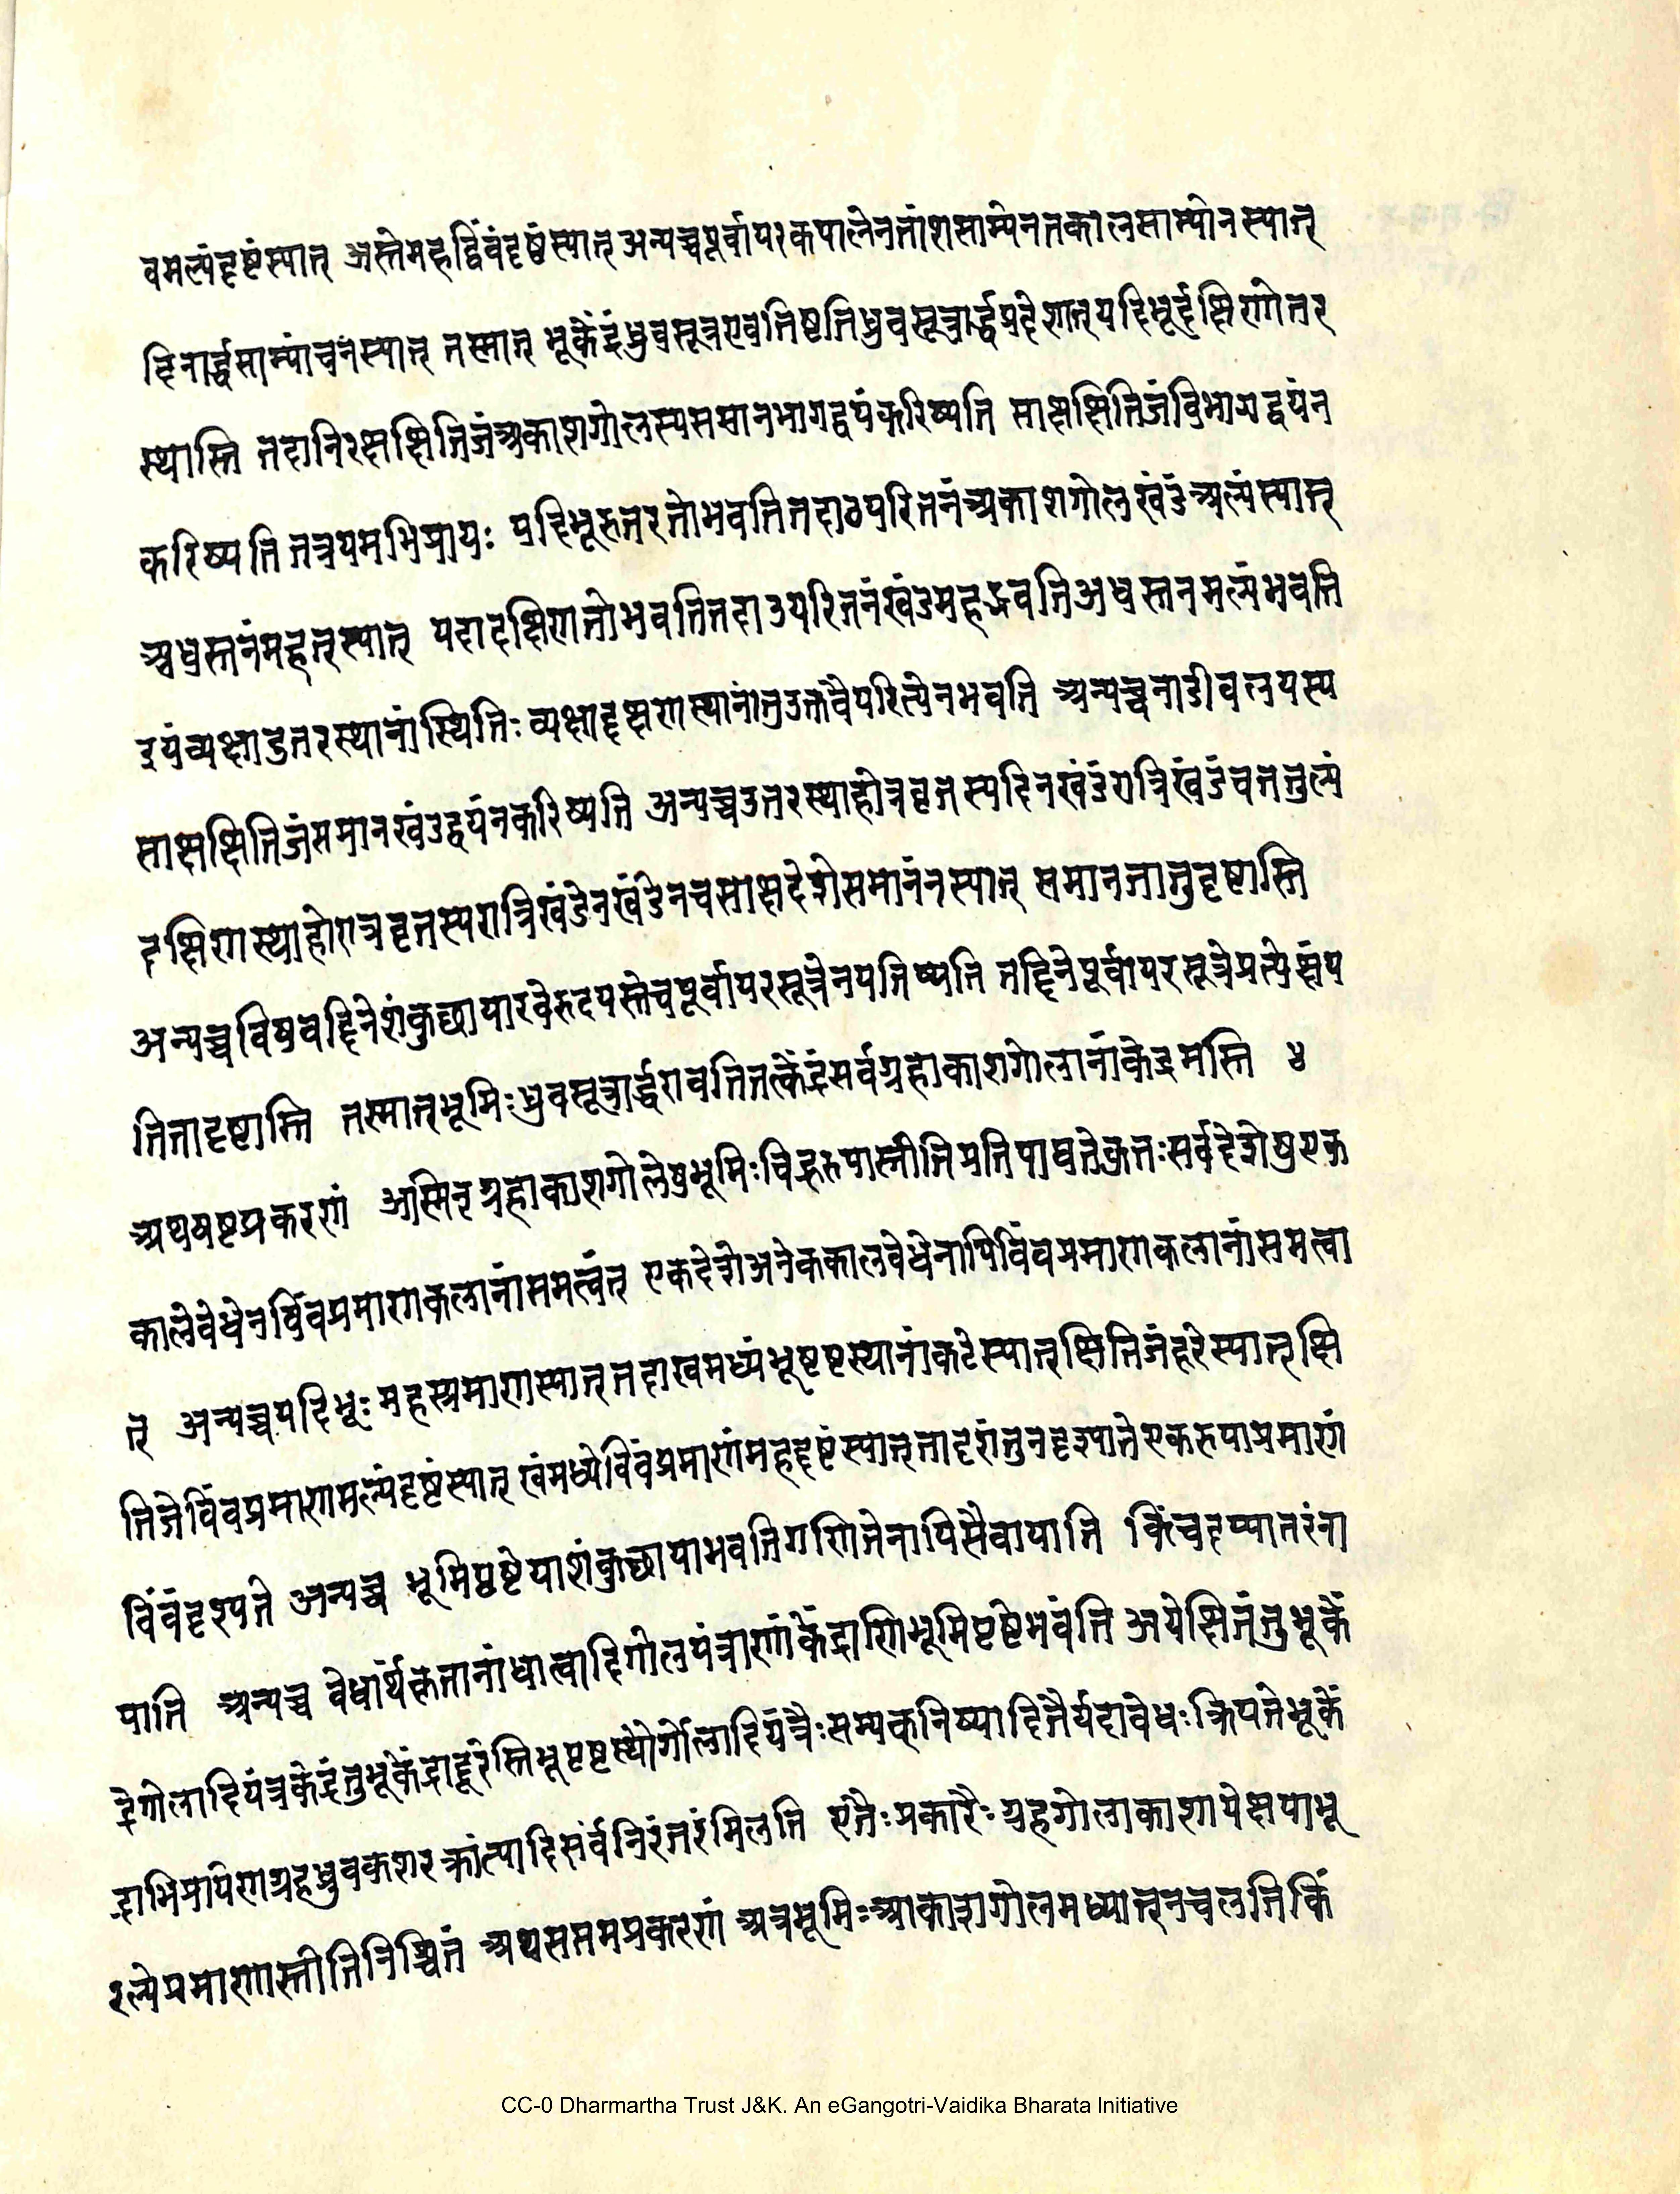 वमल्पंदृष्टंस्यात् अस्तेमहद्विंवंदृष्टंस्यात् अन्यच्चपूर्वापरकपालेनतांशसाम्येनतकालसाम्यंनस्यात्
दिनार्द्धसाम्यंचनस्यात् तस्मात् भूकेंद्रंध्रुवसूत्रएवतिष्टतिध्रुवसूत्रार्द्धप्रदेशात्यदिभूर्दक्षिणोत्तर
स्थास्ति तदानिरक्षक्षितिजंअकाशगोलस्यसमानभागद्वयंकरिष्यति साक्षक्षितिजंविभागद्वयंन
करिष्यति तत्रायमभिप्रायः यदिभूरुत्तरतोभवतितदाउपरितनंअकाशगोलखंडंअल्पंस्यात्
अधस्तनंमहत्स्यात् यदादक्षिणतोभवतितदाउपरितनंखंडमहद्भवतिअधस्तनमल्पंभवति
इयंव्यक्षादुत्तरस्थानांस्थितिः व्यक्षाद्दक्षणस्थानांतुउक्तवैपरित्येनभवति अन्यच्चनाडीवलयस्य
साक्षक्षितिजंसमानखंडद्वयंनकरिष्यति अन्यच्चउत्तरस्थाहोरात्रवृत्तस्यदिनखंडंरात्रिखंडंचतत्तुल्य
दक्षिणस्थाहोरात्रवृत्तस्यरात्रिखंडेनखंडेनचसाक्षदेशेसमानंनस्यात् समानतातुदृष्टास्ति
अन्यच्चविषवद्दिनेशंकुछायारवेरुदयस्तेचपूर्वापरसूत्रेनपतिष्यति तद्दिनेपूर्वापरसूत्रेप्रत्येक्षंप
तितादृष्टास्ति तस्मात्भूमिःध्रुवसूत्रार्द्धएवतितत्केंद्रंसर्वग्रहाकाशगोलानांकेंद्रमस्ति ५
अथषष्टप्रकरणं अस्मिन्ग्रहाकाशगोलेषुभूमिःचिह्नरुपास्तीतिप्रतिपाद्यतेकुतःसर्वदेशेषुएक
कालेवेधेनविंवप्रमाणकलानांसमत्वंत् एकदेशेअनेककालवेधेनापिविंवप्रमाणकलानांसमत्वा
त् अन्यच्चयदिभूःमहत्प्रमाणास्यात्तदाखमध्यंभूपृष्टस्थानांकटेस्यात्क्षितिजंदूरेस्यात्क्षि
तिजेविंवप्रमाणमल्पंदृष्टंस्यात् खंमध्येविंवंप्रमाणंमहद्दृष्टंस्यात्तादृशंतुनदृश्यतेएकरुपाप्रमाणं
विंवंदृश्यते अन्यच्च भूमिपृष्टेयाशंकुछायाभवतिगणितेनापिसैवायाति किंचदप्यातरंना
याति अन्यच्च वेधार्थंकृतानांधात्वादिगोलयंत्राणांकेंद्राणिभूमिपृष्टेभवंति अपेक्षितंतुभूकें
द्रेगोलादियंत्रकेंद्रंतुभूकेंद्राद्दूरेस्तिभूपृष्टस्थेर्गोलादियंत्रैःसम्यक्निष्पादितैर्यदावेधःक्रियतेभूकें
द्राभिप्रायेणग्रहध्रुवकशरक्रांत्यादिसर्वंनिरंतरंमिलति एतैःप्रकारैःग्रहगोलाकाशापेक्षयाभू
रल्पेप्रमाणास्तीतिनिश्चितं अथसप्तमप्रकरणं अत्रभूमिःआकाशगोलमध्यात्नचलतिकिं
CC-0 Dharmartha Trust J&K. An eGangotri-Vaidika Bharata Initiative